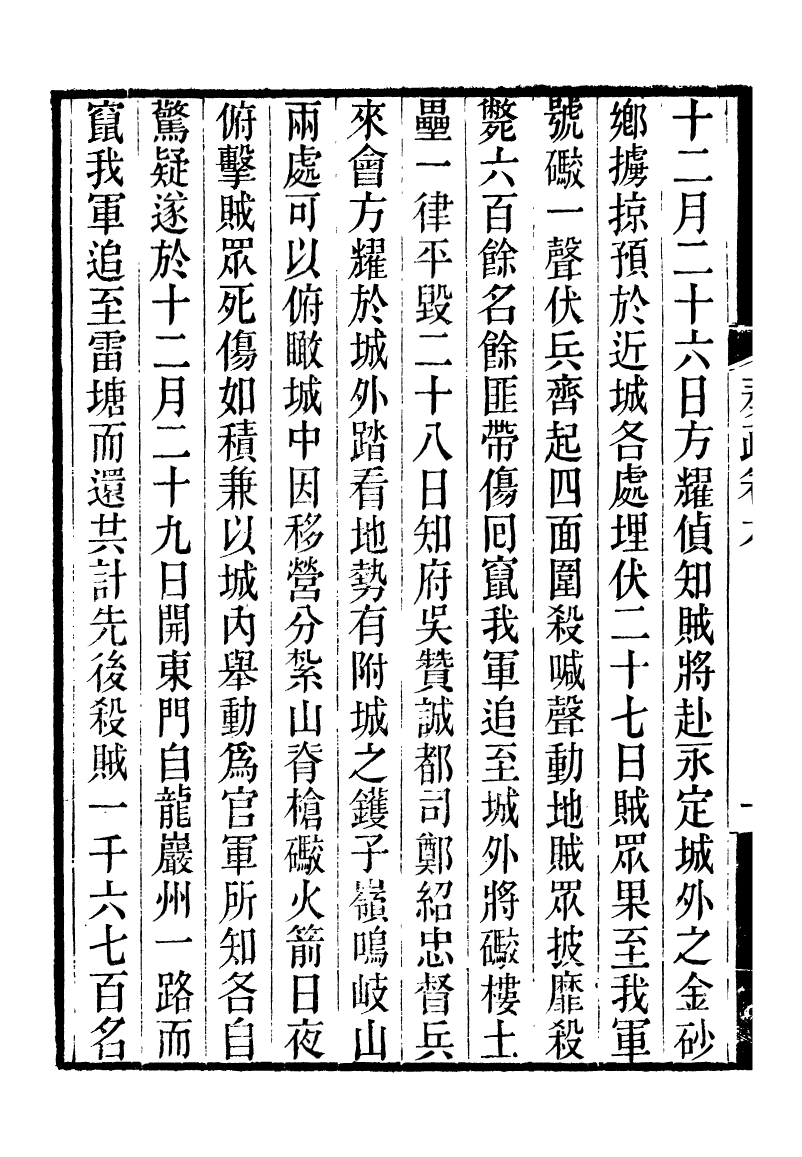 十二月二十六日方耀偵知賊將赴永定城外之金砂
鄉擄掠預於近城各處埋伏二十七日賊眾果至我軍
號礮一聲伏兵齊起四面圍殺喊聲動地賊眾披靡殺
斃六百餘名餘匪帶傷回竄我軍追至城外將礮樓土
壘一律平毀二十八日知府吳贊誠都司鄭紹忠督兵
來會方耀於城外踏看地勢有附城之鑊子嶺鳴岐山
兩處可以俯瞰城中因移營分紮山脊槍礮火箭日夜
俯擊賊眾死傷如積兼以城內舉動爲官軍所知各自
驚疑遂於十二月二十九日開東門自龍巖州一路而
竄我軍追至雷塘而還共計先後殺賊一千六七百名